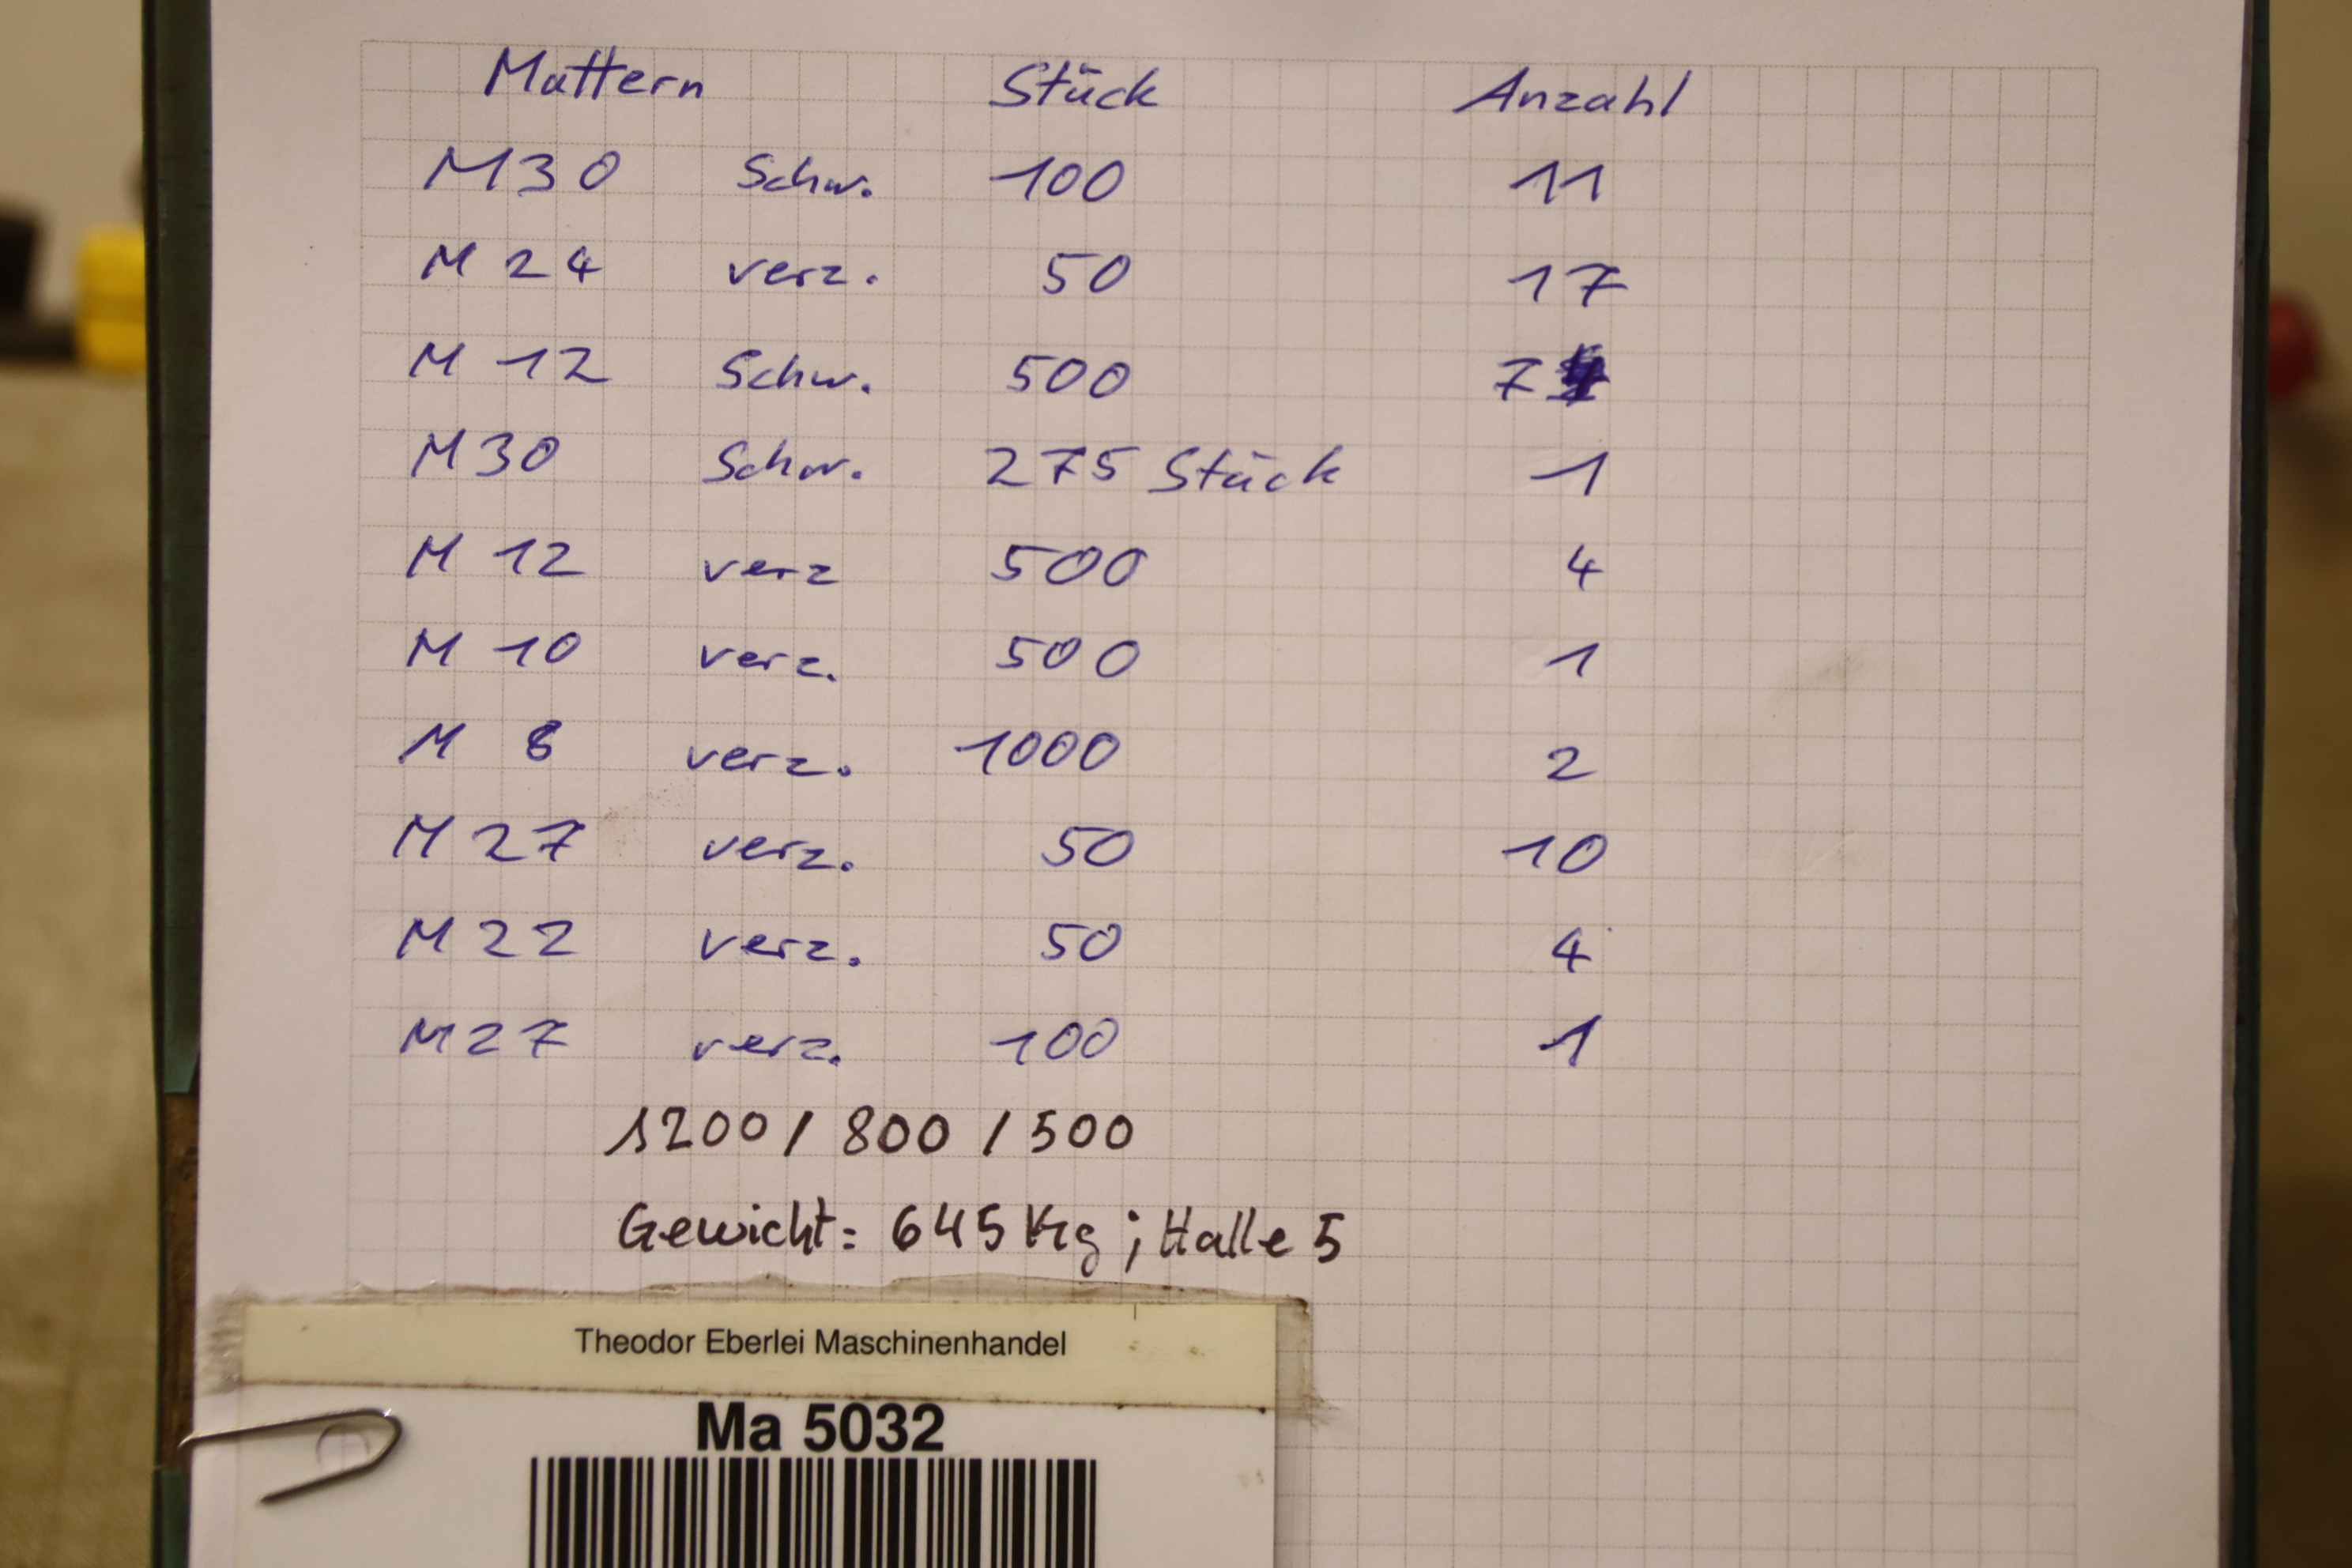 Muttern Stück Anzahl
M30 Schw. 100 11
M 24 verz. 50 17
M 12 Schw. 500 7
M30 Schw. 275 Stück 1
M 12 verz 500 4
M 10 verz. 500 1
M 8 verz. 1000 2
M 27 verz. 50 10
M 22 verz. 50 4
M27 verz. 100 1
1200 / 800 / 500
Gewicht: 645 Kg ; Halle 5
Theodor Eberlei Maschinenhandel
Ma 5032